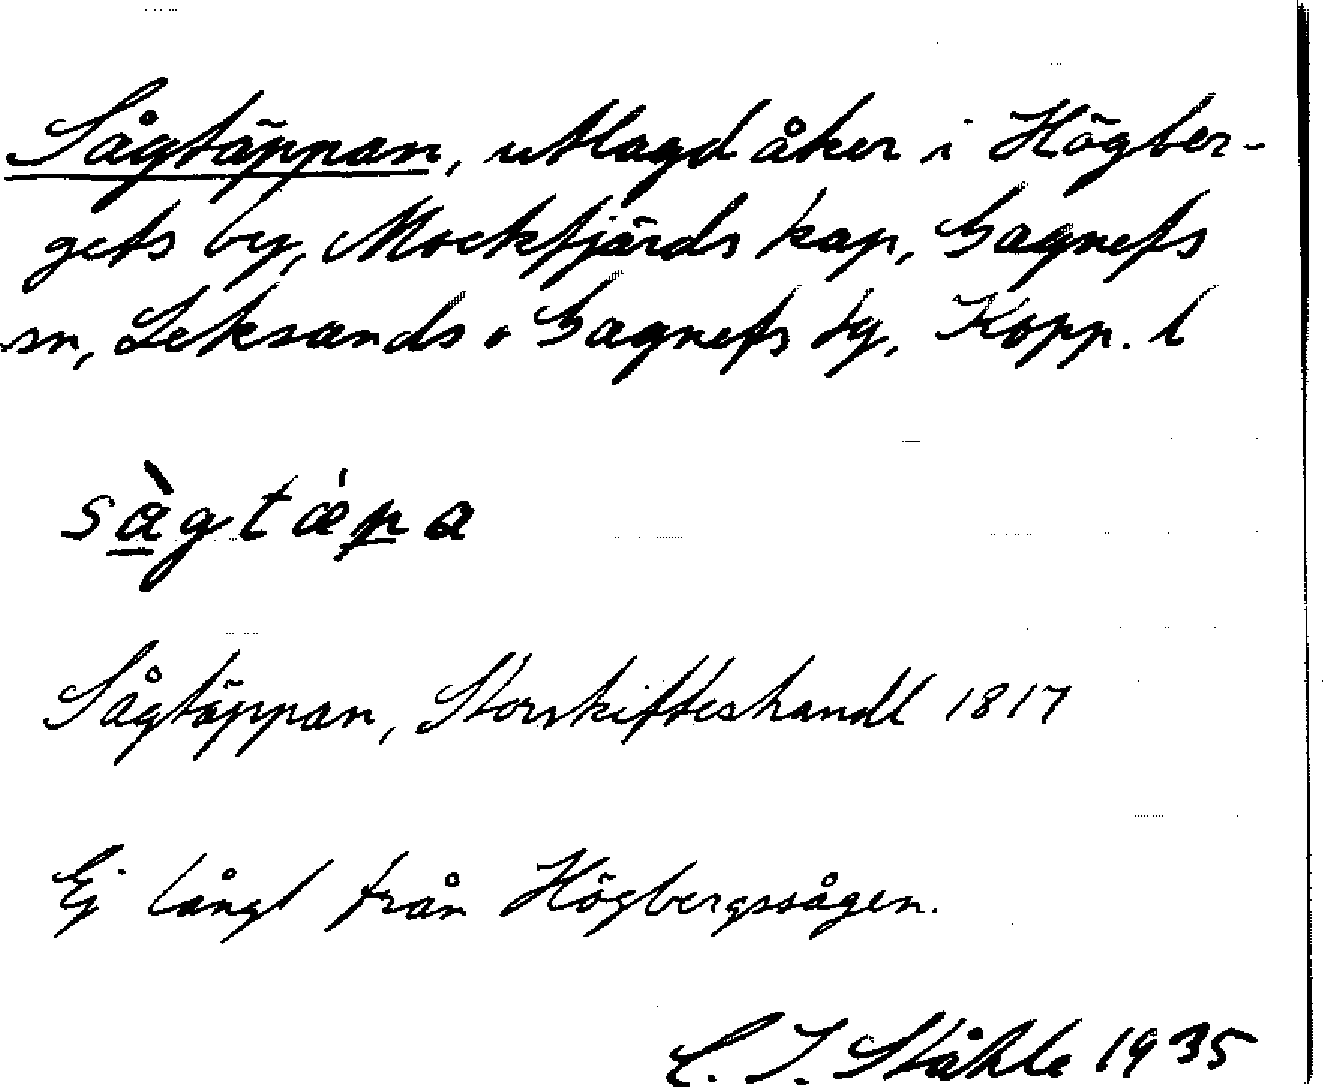 Sågtäppan, utlagd åker i Högber-
gets by, Mockfjärds kap, Gagnefs
sn, Leksands o Gagnefs tg, Kopp. l
sàgtæ̀pa
Sågtäppan, Storskifteshandl 1817
Ej långt från Högbergssågen.
C. I. Ståhle 1935